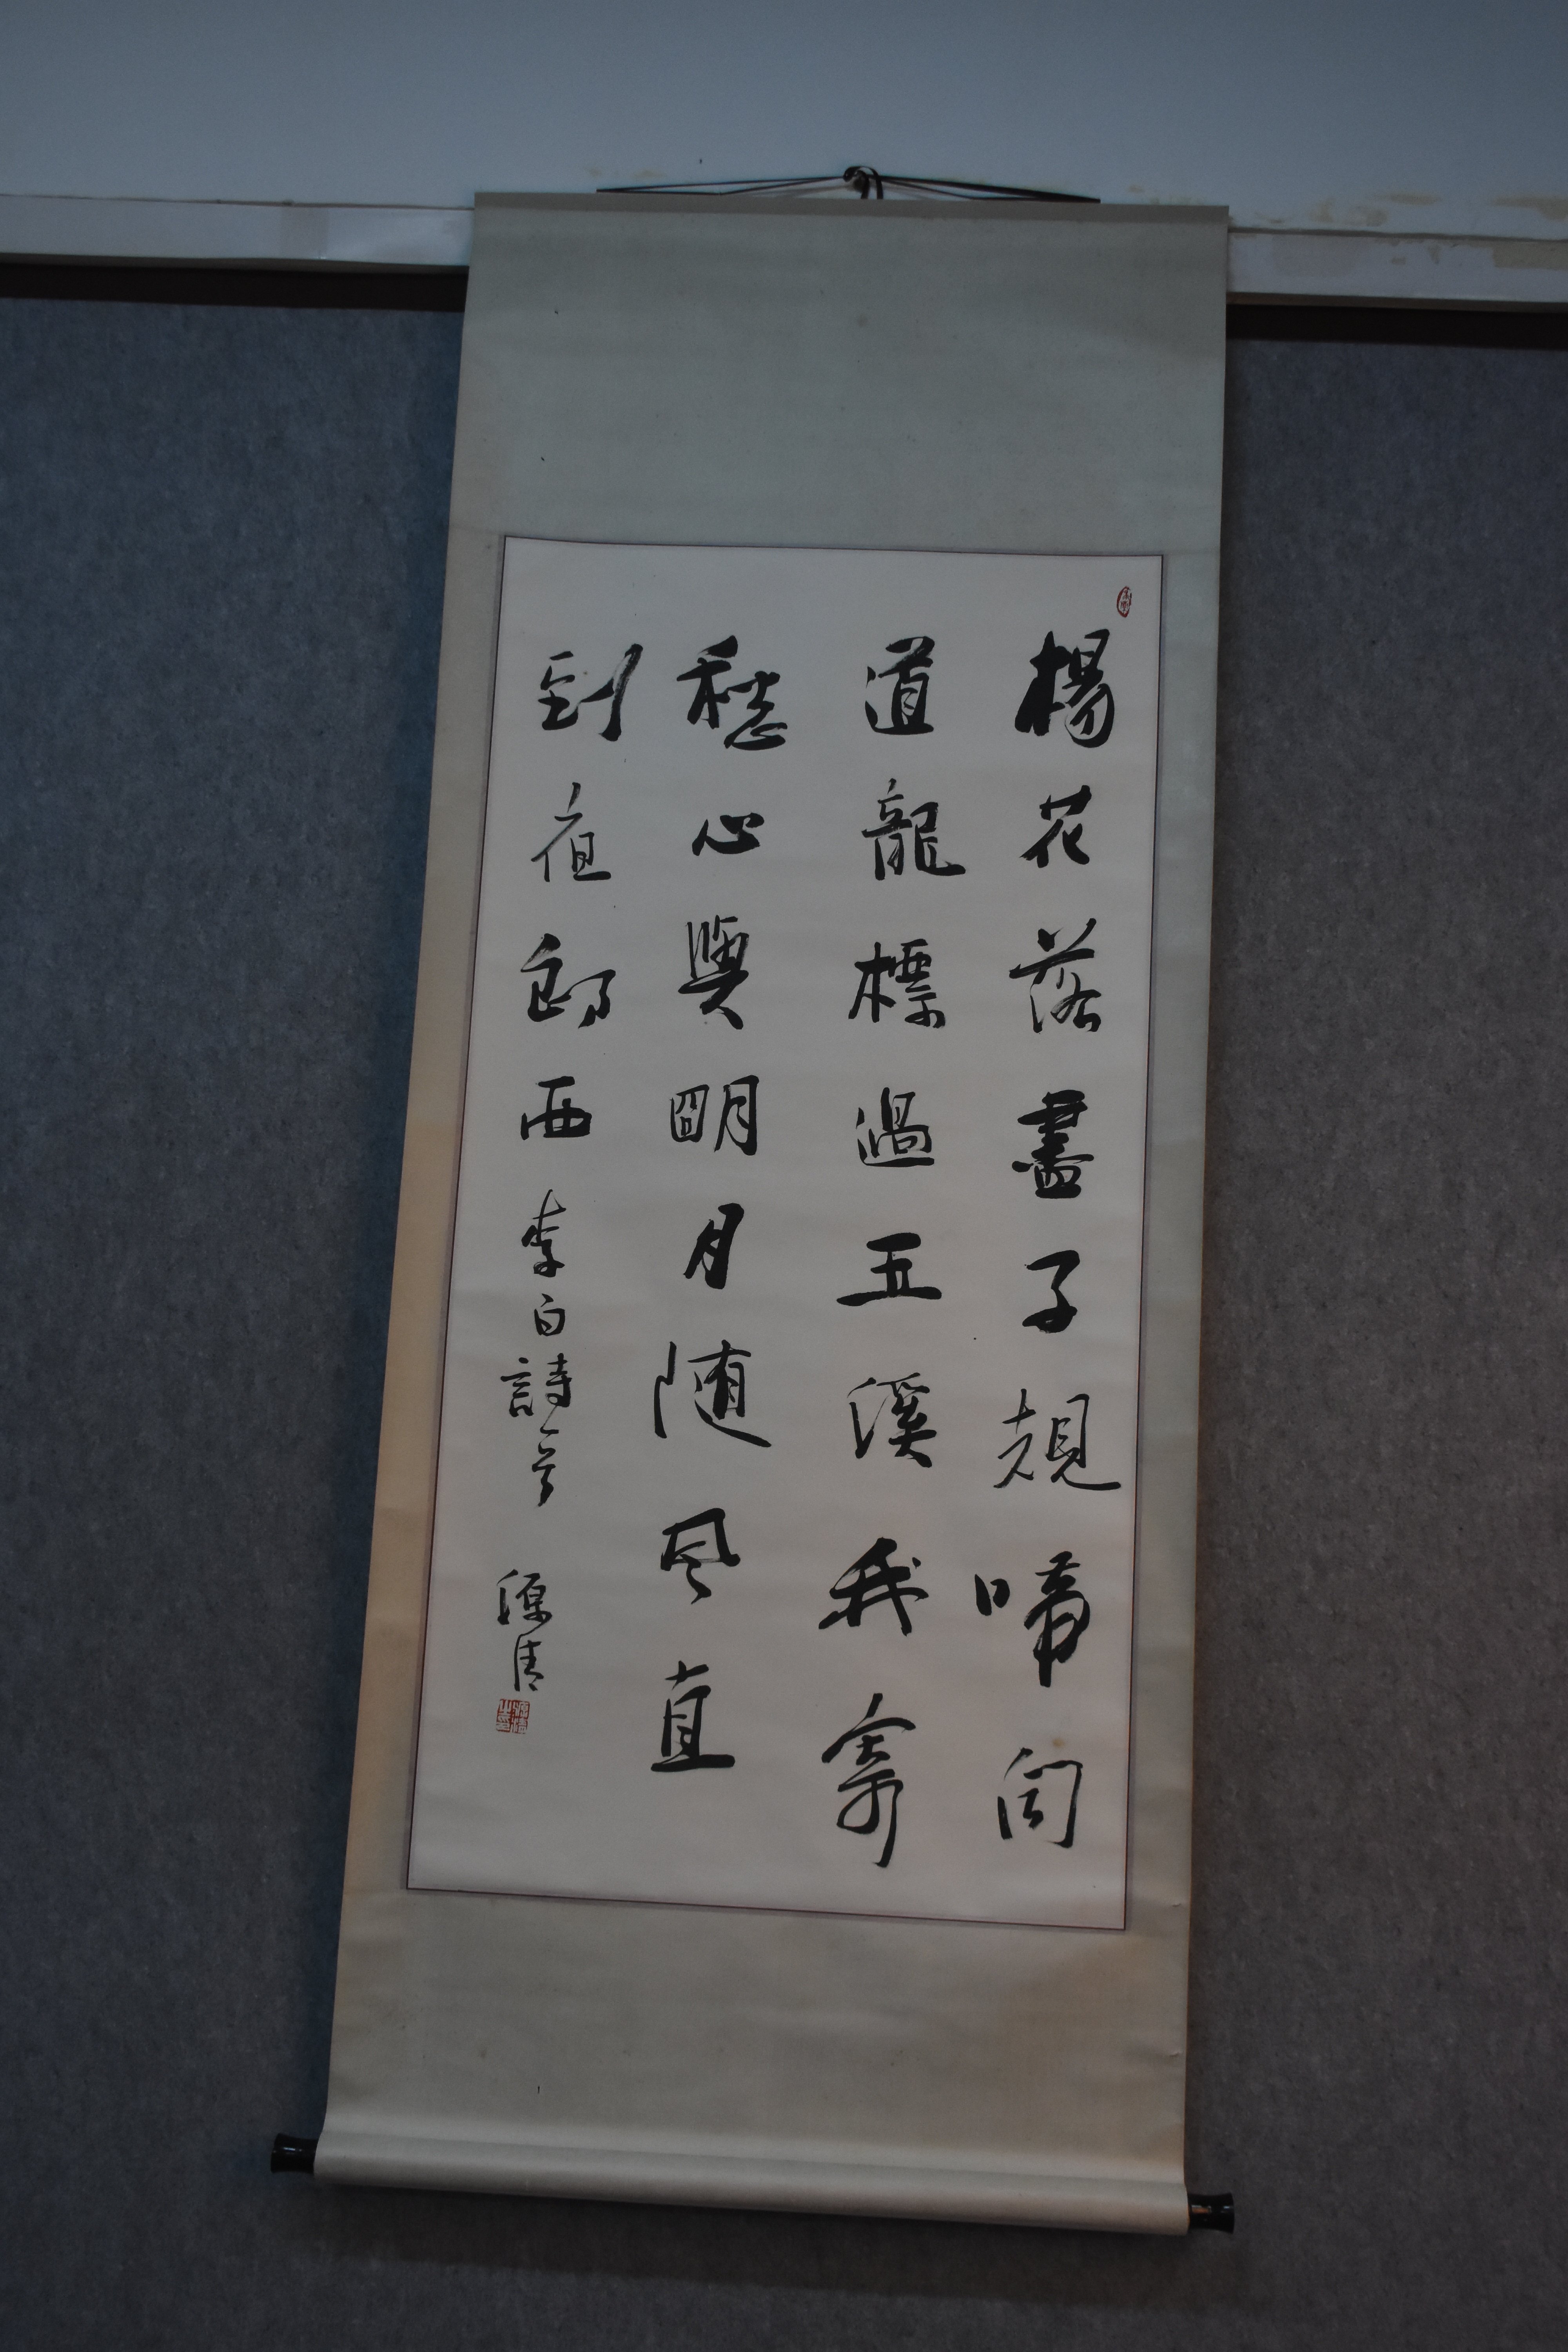 楊花落盡子規啼聞
道龍標過五溪我寄
愁心與明月随風直
到夜郎西 李白詩一首 源清